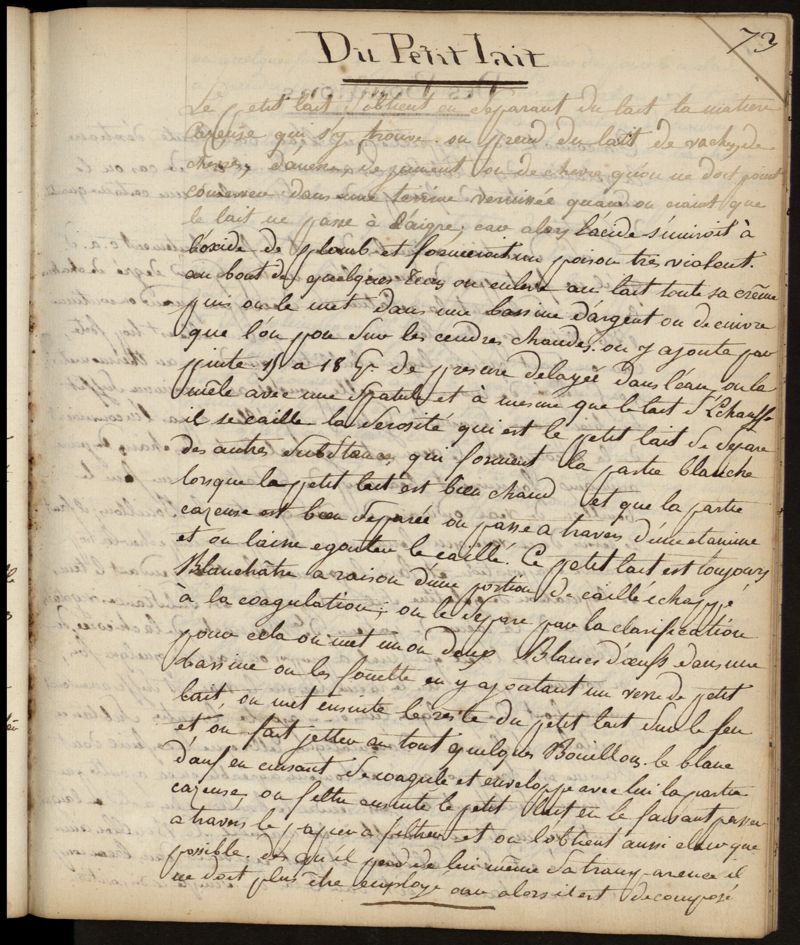 73
Du Petit lait
Le petit lait s'obtient en separant du lait la matiere
caseuse qui s'y trouve. on prend du lait de vache, de
chevre, d'anesse, de jument ou de chevre qu'on ne doit point
conserver dans une terrine vernissée quand on craint que
le lait ne passe à l'aigre, car alors l'acide s'uniroit à
l'oxide de plomb et formeroit un poison très violent.
au bout de quelques tems on enleve au lait toute sa crême
puis on le met dans une bassine d'argent ou de cuivre
que l'on pose sur les cendres chaudes. on y ajoute par
pinte 15 a 18 G. de presure delayée dans l'eau, on la
mêle avec une spatule et à mesure que le lait s'echauffe
il se caille la serosité qui est le petit lait se separe
des autres substances qui forment la partie blanche
lorsque le petit lait est bien chaud et que la partie
caseuse est bien separée on passe a travers d'une etamine
et on laisse egouter le caillé. Ce petit lait est toujours
Blanchâtre a raison d'une portion de caillé échappé
à la coagulation; on le separe par la clarification
pour cela on met un ou deux Blancs d'œufs dans une
bassine on les fouette en y ajoutant un verre de petit
lait, on met ensuite le reste du petit lait sur le feu
et on fait jetter au tout quelques Bouillons. le blanc
d'œuf en cuisant se coagule et enveloppe avec lui la partie
caseuse, on filtre ensuite le petit lait en le faisant passer
a travers le papier a filtrer et on l'obtient aussi clair que
possible. des qu'il perd de lui même sa transparence il
ne doit plus être employé car alors il est decomposé